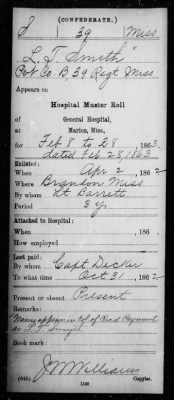 (CONFEDERATE.)
S 39 Miss
L. T. Smith
Pvt Co. B, 39 Regt Miss
Appears on
Hospital Muster Roll
of
General Hospital,
at
Marion, Miss,
for Feb 8 to 28 1863.
dated Feb 28, 1863
Enlisted:
When Apr 2, 1862
Where Brandon Miss
By whom Lt Barrett
Period 3 y.
Attached to Hospital:
When , 186 .
How employed
Last paid:
By whom Capt Decker
To what time Oct 31, 1862
Present or absent Present
Remarks:
Name appears in Col of Rec'd Payment
as
Book mark:
J W Williams
(642) Copyist.